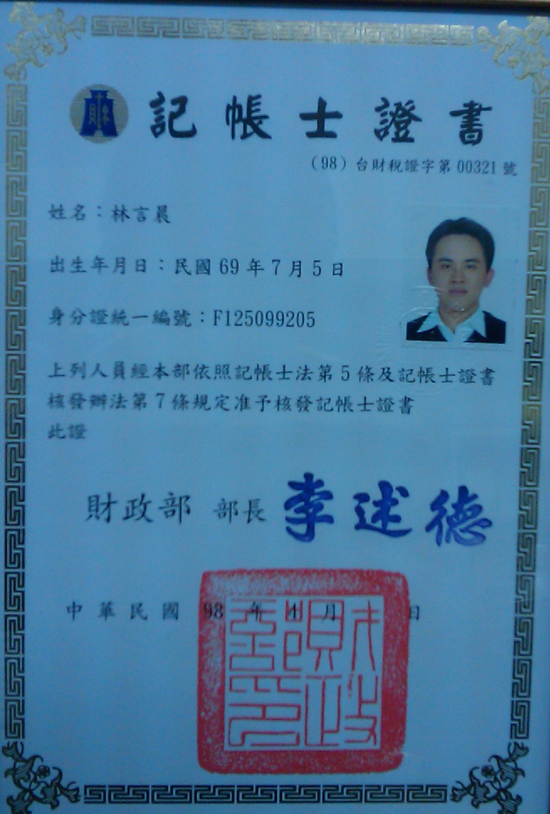 記帳士證書
(98)台財稅證字第00321號
姓名：林言晨
出生年月日：民國69年7月5日
身分證統一編號：F125099205
上列人員經本部依照記帳士法第5條及記帳士證書
核發辦法第7條規定准予核發記帳士證書
此證
財政部 部長 李述德
中華民國 98 年 4 月 日
財政部印